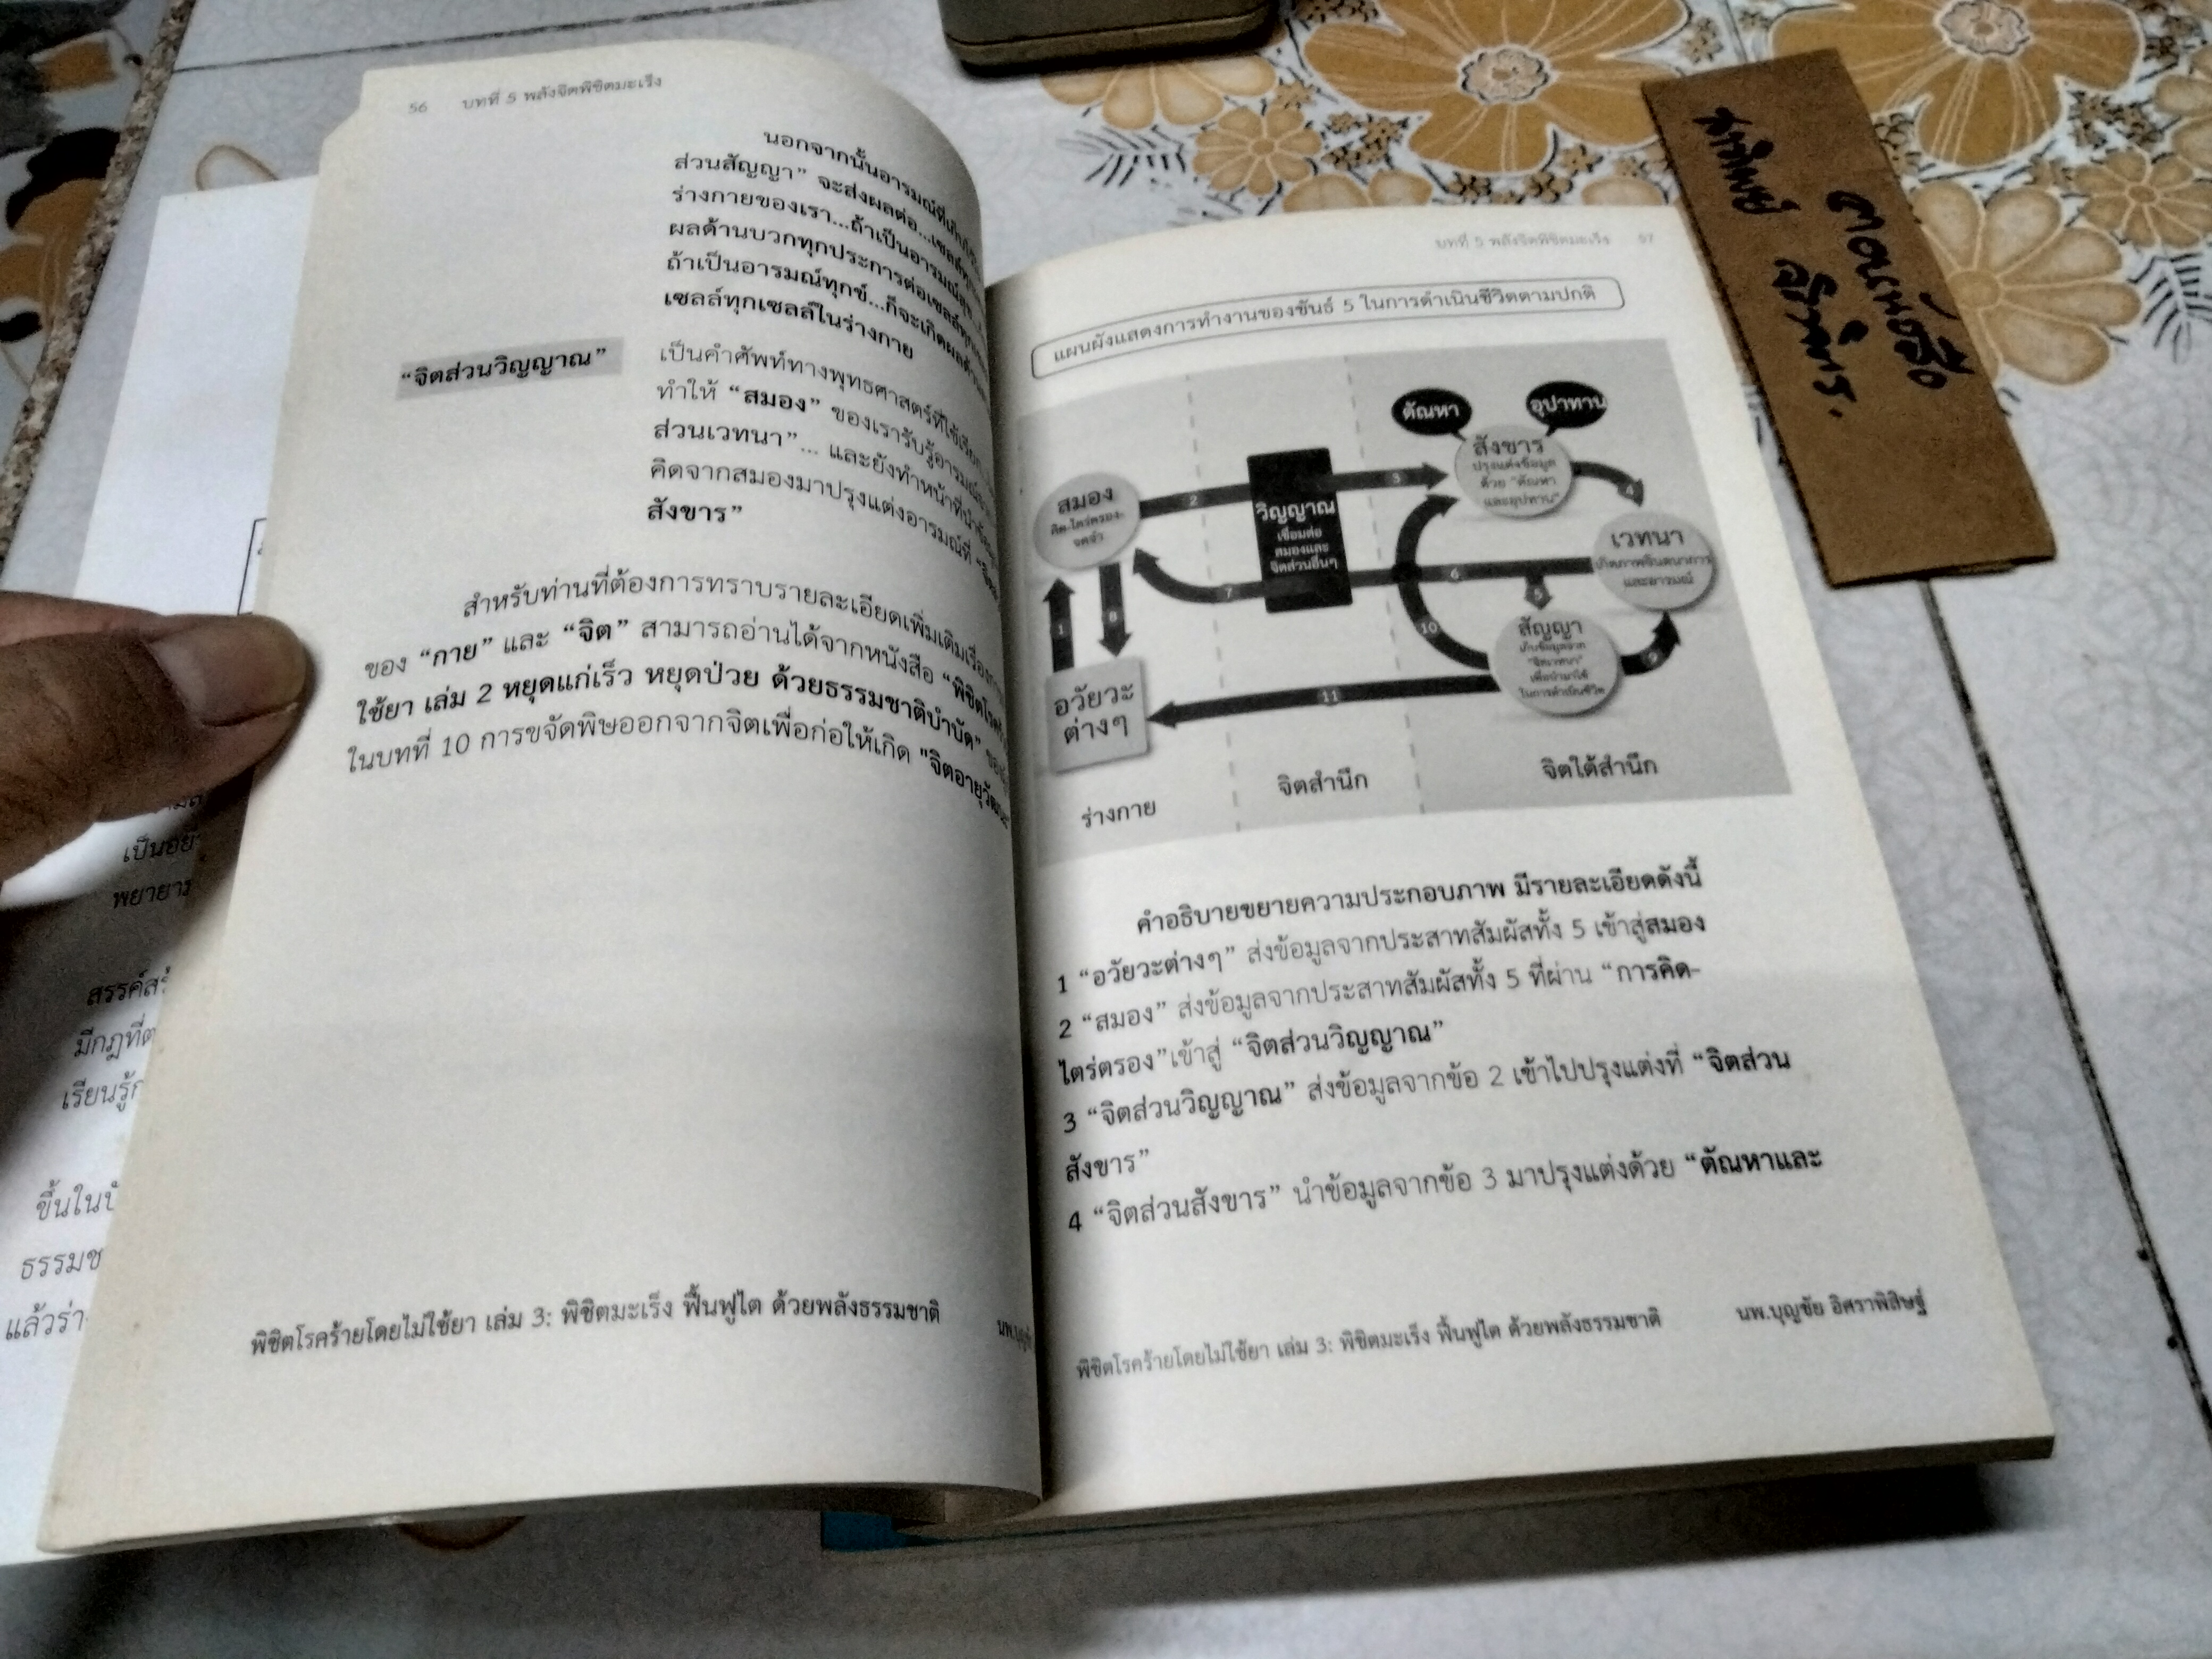 56 บทที่ 5 พลังจิตพิชิตมะเร็ง
นอกจากนั้นอารมณ์ที่เก็บ
ส่วนสัญญา” จะส่งผลต่อ...เซลล์ทุก
ร่างกายของเรา...ถ้าเป็นอารมณ์สุข
ผลด้านบวกทุกประการต่อเซลล์ทุก
ถ้าเป็นอารมณ์ทุกข์...ก็จะเกิดผลด้าน
เซลล์ทุกเซลล์ในร่างกาย
“จิตส่วนวิญญาณ”
เป็นคำศัพท์ทางพุทธศาสตร์ที่ใช้เรียก
ทำให้ “สมอง” ของเรารับรู้อารมณ์
ส่วนเวทนา”... และยังทำหน้าที่นำ
คิดจากสมองมาปรุงแต่งอารมณ์ที่
สังขาร”
สำหรับท่านที่ต้องการทราบรายละเอียดเพิ่มเติมเรื่อง
ของ “กาย” และ “จิต” สามารถอ่านได้จากหนังสือ “พิชิตโรค
ใช้ยา เล่ม 2 หยุดแก่เร็ว หยุดป่วย ด้วยธรรมชาติบำบัด”
ในบทที่ 10 การขจัดพิษออกจากจิตเพื่อก่อให้เกิด "จิตอายุวัฒนะ"
พิชิตโรคร้ายโดยไม่ใช้ยา เล่ม 3: พิชิตมะเร็ง ฟื้นฟูไต ด้วยพลังธรรมชาติ
นพ.บุญชัย
เป็นอย
พยายาม
สรรค์สร้
มีกฎที่ต
เรียนรู้ก
ขึ้นในป
ธรรมช
แล้วร่า
บทที่ 5 พลังจิตพิชิตมะเร็ง 57
แผนผังแสดงการทำงานของขันธ์ 5 ในการดำเนินชีวิตตามปกติ
ตัณหา
อุปาทาน
สังขาร
ปรุงแต่งข้อมูล
ด้วย “ตัณหา
และอุปทาน”
สมอง
คิด-ไตร่ตรอง-
จดจำ
วิญญาณ
เชื่อมต่อ
สมองและ
จิตส่วนอื่นๆ
เวทนา
เกิดภาพจินตนาการ
และอารมณ์
สัญญา
เก็บข้อมูลจาก
“จิตเวทนา”
เพื่อนำมาใช้
ในการดำเนินชีวิต
อวัยวะ
ต่างๆ
2
3
4
6
7
5
1
8
10
9
11
ร่างกาย
จิตสำนึก
จิตใต้สำนึก
คำอธิบายขยายความประกอบภาพ มีรายละเอียดดังนี้
1 “อวัยวะต่างๆ” ส่งข้อมูลจากประสาทสัมผัสทั้ง 5 เข้าสู่สมอง
2 “สมอง” ส่งข้อมูลจากประสาทสัมผัสทั้ง 5 ที่ผ่าน “การคิด-
ไตร่ตรอง”เข้าสู่ “จิตส่วนวิญญาณ”
3 “จิตส่วนวิญญาณ” ส่งข้อมูลจากข้อ 2 เข้าไปปรุงแต่งที่ “จิตส่วน
สังขาร”
4 “จิตส่วนสังขาร” นำข้อมูลจากข้อ 3 มาปรุงแต่งด้วย “ตัณหาและ
พิชิตโรคร้ายโดยไม่ใช้ยา เล่ม 3: พิชิตมะเร็ง ฟื้นฟูไต ด้วยพลังธรรมชาติ นพ.บุญชัย อิศราพิสิษฐ์